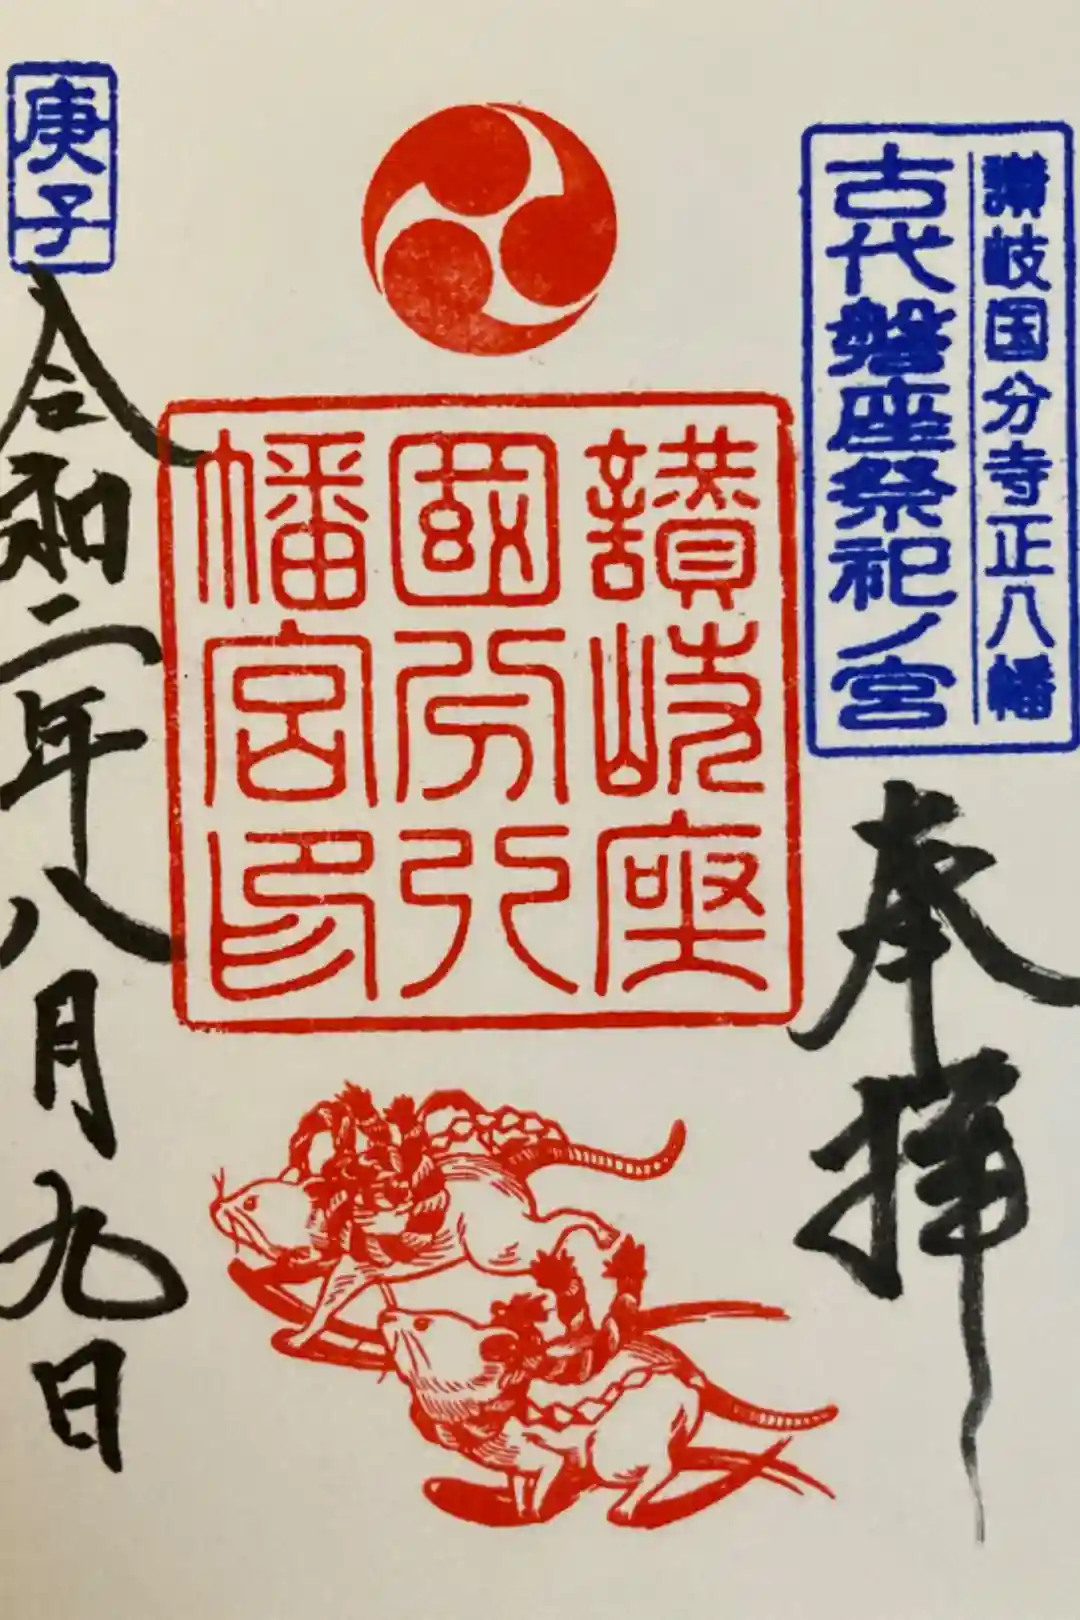 讃岐国分寺正八幡
古代磐座祭祀ノ宮
奉拝
讃岐座
國分八
幡宮印
庚子
令和二年八月九日